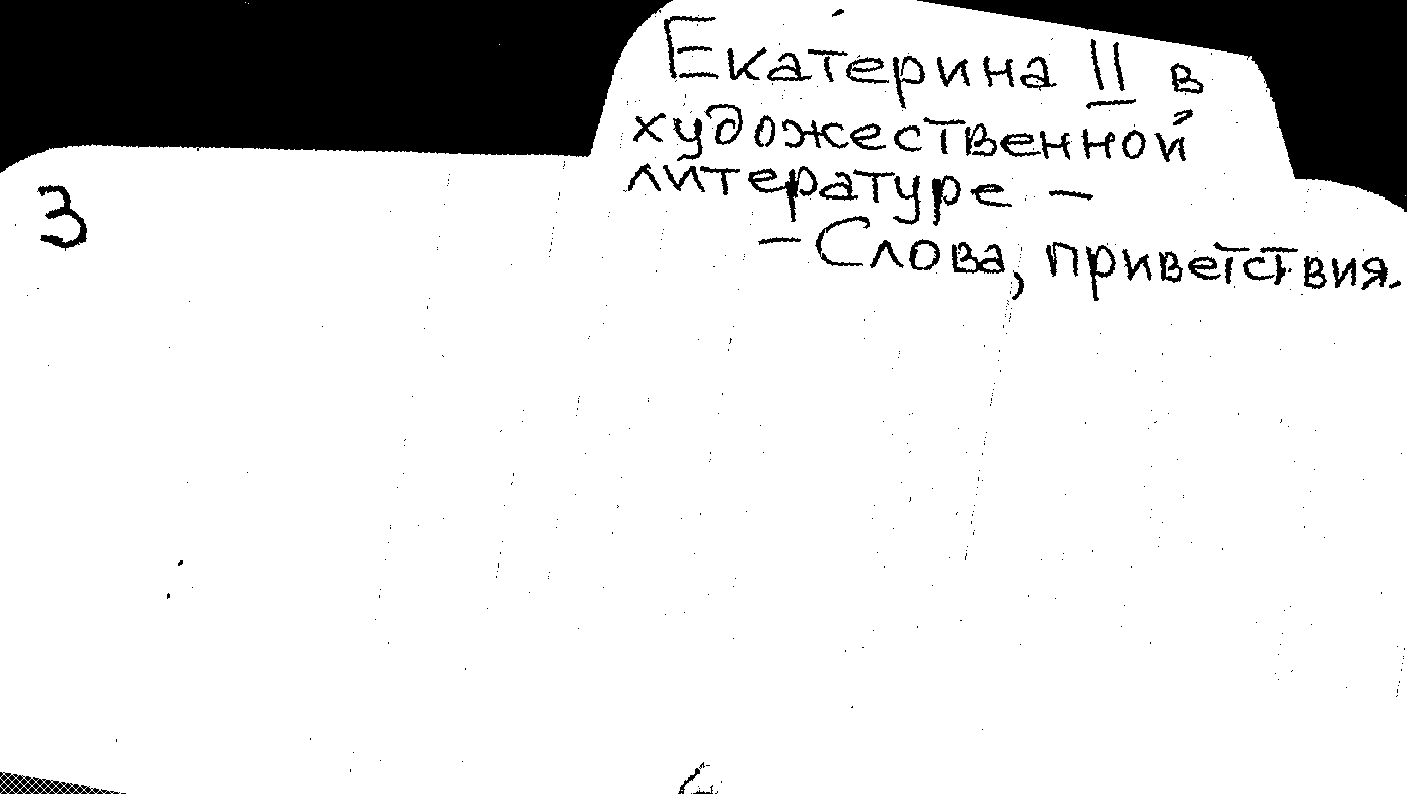 Екатерина II в
художественной
литературе –
– Слова, приветствия.
3